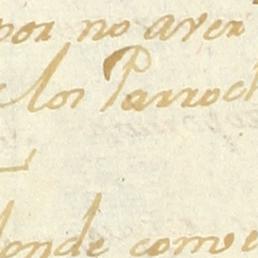 por no aver
los Parroch
donde como e